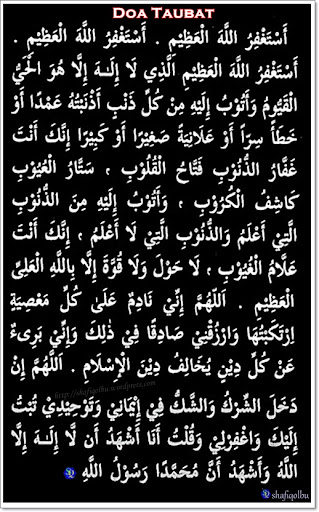 DOA TAUBAT
أَسْتَغْفِرُ اللَّهَ الْعَظِيْمِ . أَسْتَغْفِرُ اللَّهَ الْعَظِيْمِ .
أَسْتَغْفِرُ اللَّهَ الْعَظِيْمِ الَّذِي لَا إِلَـهَ إِلَّا هُوَ الْحَيُّ
الْقَيُّومُ وَأَتُوْبُ إِلَيْهِ مِنْ كُلِّ ذَنْبٍ أَذْنَبْتُهُ عَمْدًا أَوْ
خَطَأً سِرًّا أَوْ عَلَانِيَةً صَغِيْرًا أَوْ كَبِيْرًا إِنَّكَ أَنْتَ
غَفَّارُ الذُّنُوْبِ فَتَّاحُ الْقُلُوْبِ ، سَتَّارُ الْعُيُوْبِ
كَاشِفُ الْكُرُوْبِ ، وَأَتُوْبُ إِلَيْهِ مِنَ الذُّنُوْبِ
الَّتِيْ أَعْلَمُ وَالذُّنُوْبِ الَّتِيْ لَا أَعْلَمُ ، إِنَّكَ أَنْتَ
عَلَّامُ الْغُيُوْبِ ، لَا حَوْلَ وَلَا قُوَّةَ إِلَّا بِاللَّهِ الْعَلِيِّ
الْعَظِيْمِ . اَللَّهُمَّ إِنِّيْ نَادِمٌ عَلَىٰ كُلِّ مَعْصِيَةٍ
اِرْتَكَبْتُهَا وَارْزُقْنِيْ صَادِقًا فِيْ ذَلِكَ وَإِنِّيْ بَرِىءٌ
عَنْ كُلِّ دِيْنٍ يُخَالِفُ دِيْنَ الْإِسْلَامِ . اَللَّهُمَّ إِنْ
http://shafiqolbu.wordpress.com
دَخَلَ الشِّرْكُ وَالشَّكُّ فِيْ إِيْمَانِيْ وَتَوْحِيْدِيْ تُبْتُ
إِلَيْكَ وَاغْفِرْلِيْ وَقُلْتُ أَنَا أَشْهَدُ أَن لَّا إِلَـهَ إِلَّا
اللَّهُ وَأَشْهَدُ أَنَّ مُحَمَّدًا رَسُوْلُ اللَّهِ
shafiqolbu